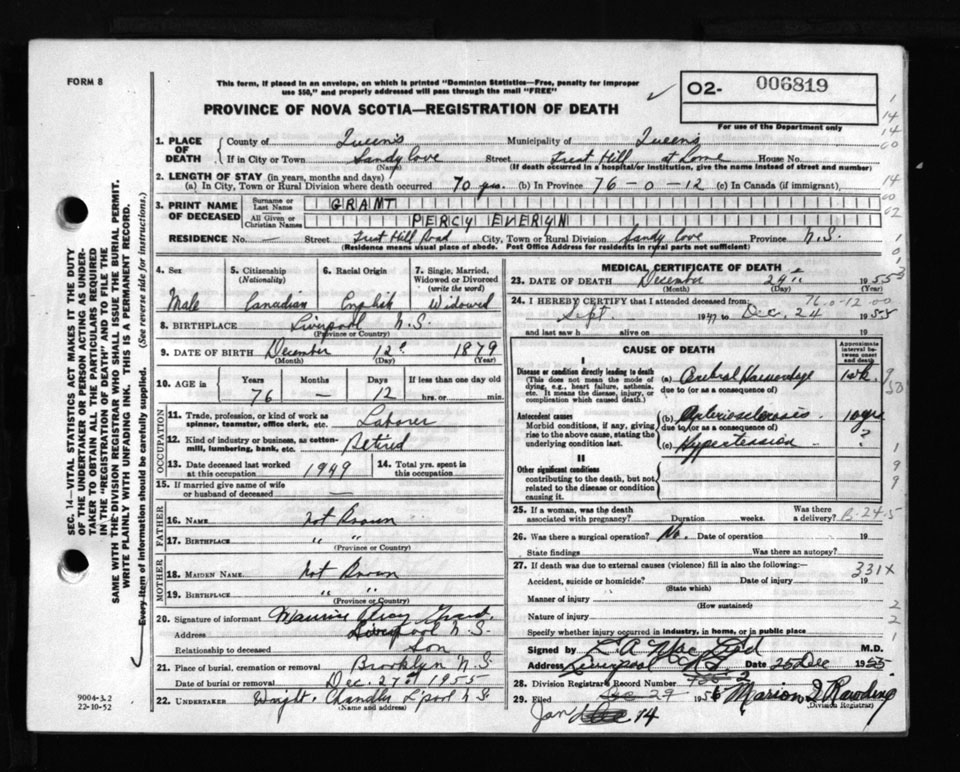 FORM 8
This form, if placed in an envelope, on which is printed "Dominion Statistics—Free, penalty for improper
use $50," and properly addressed will pass through the mail "FREE"
PROVINCE OF NOVA SCOTIA—REGISTRATION OF DEATH
02- 006819
For use of the Department only
1. PLACE OF DEATH County of Queens Municipality of Queens
If in City or Town Sandy Cove Street Hill at House No.
(Name) (If death occurred in a hospital/or institution, give the name instead of street and number)
2. LENGTH OF STAY (in years, months and days)
(a) In City, Town or Rural Division where death occurred 70 yrs. (b) In Province 76-0-12 (c) In Canada (if immigrant)
3. PRINT NAME OF DECEASED Surname or Last Name GRANT
All Given or Christian Names PERCY EVERLYN
RESIDENCE No. — Street Hill Road City, Town or Rural Division Sandy Cove Province N.S.
(Residence means usual place of abode. Post Office Address for residents in rural parts not sufficient)
4. Sex Male
5. Citizenship (Nationality) Canadian
6. Racial Origin English
7. Single, Married, Widowed or Divorced (write the word) Widowed
8. BIRTHPLACE Liverpool N.S.
(Province or Country)
9. DATE OF BIRTH December 12 1879
(Month) (Day) (Year)
10. AGE in Years Months Days If less than one day old
76 — 12 hrs. or min.
OCCUPATION
11. Trade, profession, or kind of work as
spinner, teamster, office clerk, etc. Laborer
12. Kind of industry or business, as cotton-
mill, lumbering, bank, etc. Retired
13. Date deceased last worked
at this occupation 1949
14. Total yrs. spent in
this occupation
15. If married give name of wife
or husband of deceased —
FATHER
16. NAME Not Known
17. BIRTHPLACE " "
(Province or Country)
MOTHER
18. MAIDEN NAME Not Known
19. BIRTHPLACE " "
(Province or Country)
20. Signature of informant Maurice Grant
Address Liverpool N.S.
Relationship to deceased Son
21. Place of burial, cremation or removal Brooklyn N.S
Date of burial or removal Dec. 27th 1955
22. UNDERTAKER Wright. Chandler L'pool N.S
(Name and address)
MEDICAL CERTIFICATE OF DEATH
23. DATE OF DEATH December 24th 1955
(Month) (Day) (Year)
24. I HEREBY CERTIFY that I attended deceased from:
76-0-12-00
Sept 1947 to Dec. 24 1955
and last saw h alive on 19
CAUSE OF DEATH
Approximate interval between onset and death
I
Disease or condition directly leading to death
(This does not mean the mode of
dying, e.g., heart failure, asthenia,
etc. It means the disease, injury, or
complication which caused death.)
(a) Cerebral Haemorrhage 1 wk.
due to (or as a consequence of)
Antecedent causes
Morbid conditions, if any, giving
rise to the above cause, stating the
underlying condition last.
(b) Arteriosclerosis 10 yrs
due to (or as a consequence of)
(c) Hypertension ?
II
Other significant conditions
contributing to the death, but not
related to the disease or condition
causing it.
25. If a woman, was the death
associated with pregnancy? Duration weeks. Was there
a delivery? B-24-5
26. Was there a surgical operation? No. Date of operation 19
State findings Was there an autopsy?
27. If death was due to external causes (violence) fill in also the following:—
331X
Accident, suicide or homicide? Date of injury 19
(State which)
Manner of injury
(How sustained)
Nature of injury
Specify whether injury occurred in industry, in home, or in public place
Signed by L. A. MacLeod M.D.
Address Liverpool NS Date 25 Dec 1955
28. Division Registrar's Record Number 2
29. Filed Dec 29 195 Marion Rawding
Jan 14 (Division Registrar)
SEC. 14—VITAL STATISTICS ACT MAKES IT THE DUTY
OF THE UNDERTAKER OR PERSON ACTING AS UNDER-
TAKER TO OBTAIN ALL THE PARTICULARS REQUIRED
IN THE "REGISTRATION OF DEATH" AND TO FILE THE
SAME WITH THE DIVISION REGISTRAR WHO SHALL ISSUE THE BURIAL PERMIT.
WRITE PLAINLY WITH UNFADING INK. THIS IS A PERMANENT RECORD.
Every item of information should be carefully supplied. (See reverse side for instructions.)
9004-3.2
22-10-52